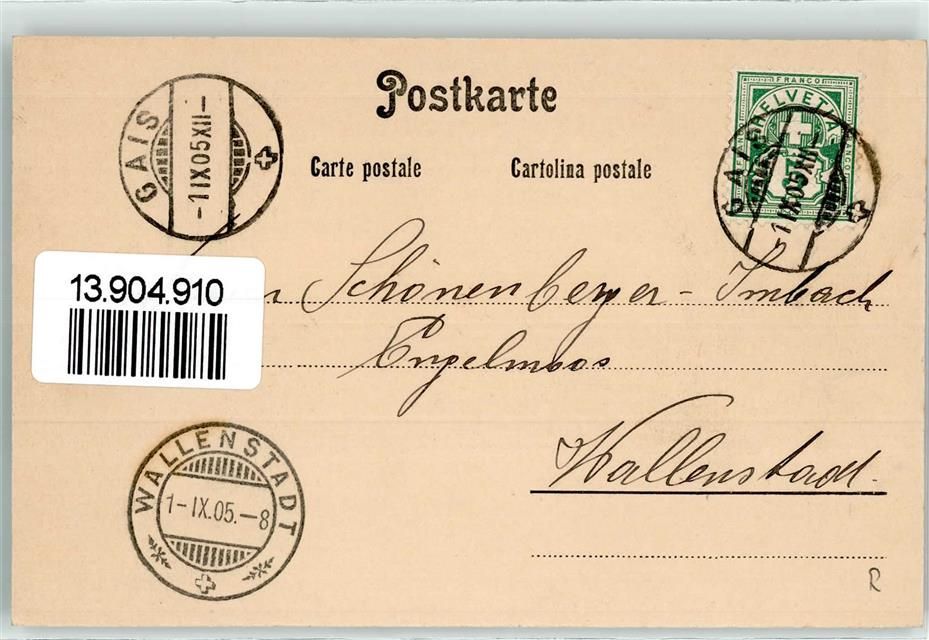 Postkarte
Carte postale Cartolina postale
GAIS
-1 IX 05 XII-
FRANCO
HELVETIA
GAIS
-1 IX 05 XII-
13.904.910
Schönenberger-Imbach
Engelmoos
Wallenstadt.
WALLENSTADT
1-IX.05.-8
R